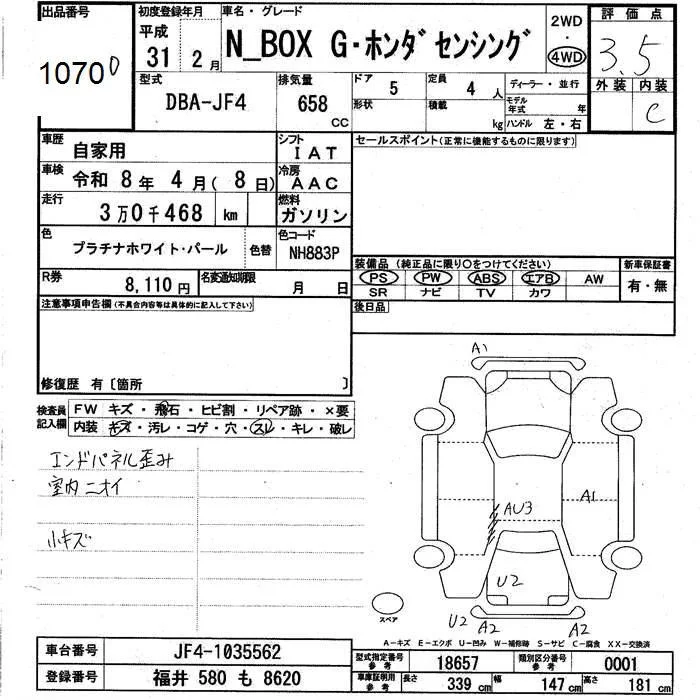 出品番号 初度登録年月 車名・グレード 2WD・4WD 評価点
1070 D 平成 31年 2月 N_BOX G・ホンダセンシング 3.5
型式 DBA-JF4 排気量 658 CC ドア 5 形状 定員 4人 積載 kg ディーラー・並行 モデル年式 年 ハンドル 左・右 外装 内装 C
車歴 自家用 シフト IAT セールスポイント(正常に機能するものに限ります)
車検 令和 8年 4月( 8日) 冷房 AAC
走行 3万0千468 km 燃料 ガソリン
色 プラチナホワイト・パール 色替 色コード NH883P
装備品 (純正品に限り○をつけてください) 新車保証書
R券 8,110円 名変通知期限 月 日 PS PW ABS エアB AW 有・無
SR ナビ TV カワ
注意事項申告欄(不具合内容等は具体的に記入して下さい) 後日品
修復歴 有〔箇所 〕
検査員記入欄 FW キズ・飛石・ヒビ割・リペア跡・×要
内装 キズ・汚レ・コゲ・穴・スレ・キレ・破レ
エンドパネル歪み
室内ニオイ
小キズ
A1
AU3
A1
U2
U2 A2 A2
スペア
A-キズ E-エクボ U-凹み W-補修跡 S-サビ C-腐食 XX-交換済
車台番号 JF4-1035562 型式指定番号 参考 18657 類別区分番号 参考 0001
登録番号 福井 580 も 8620 車庫証明用 参考 長さ 339 cm 幅 147 cm 高さ 181 cm